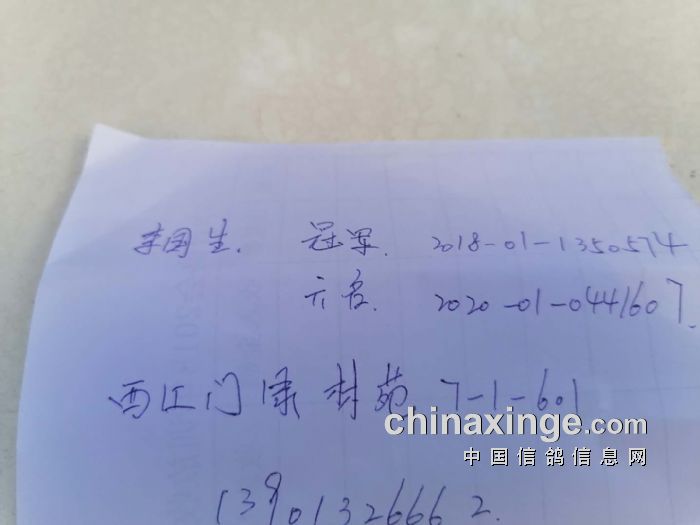 李国生. 冠军. 2018-01-1350574
六名. 2020-01-0441607
西红门绿林苑 7-1-601
13901326662.
chinaxinge.com
中国信鸽信息网